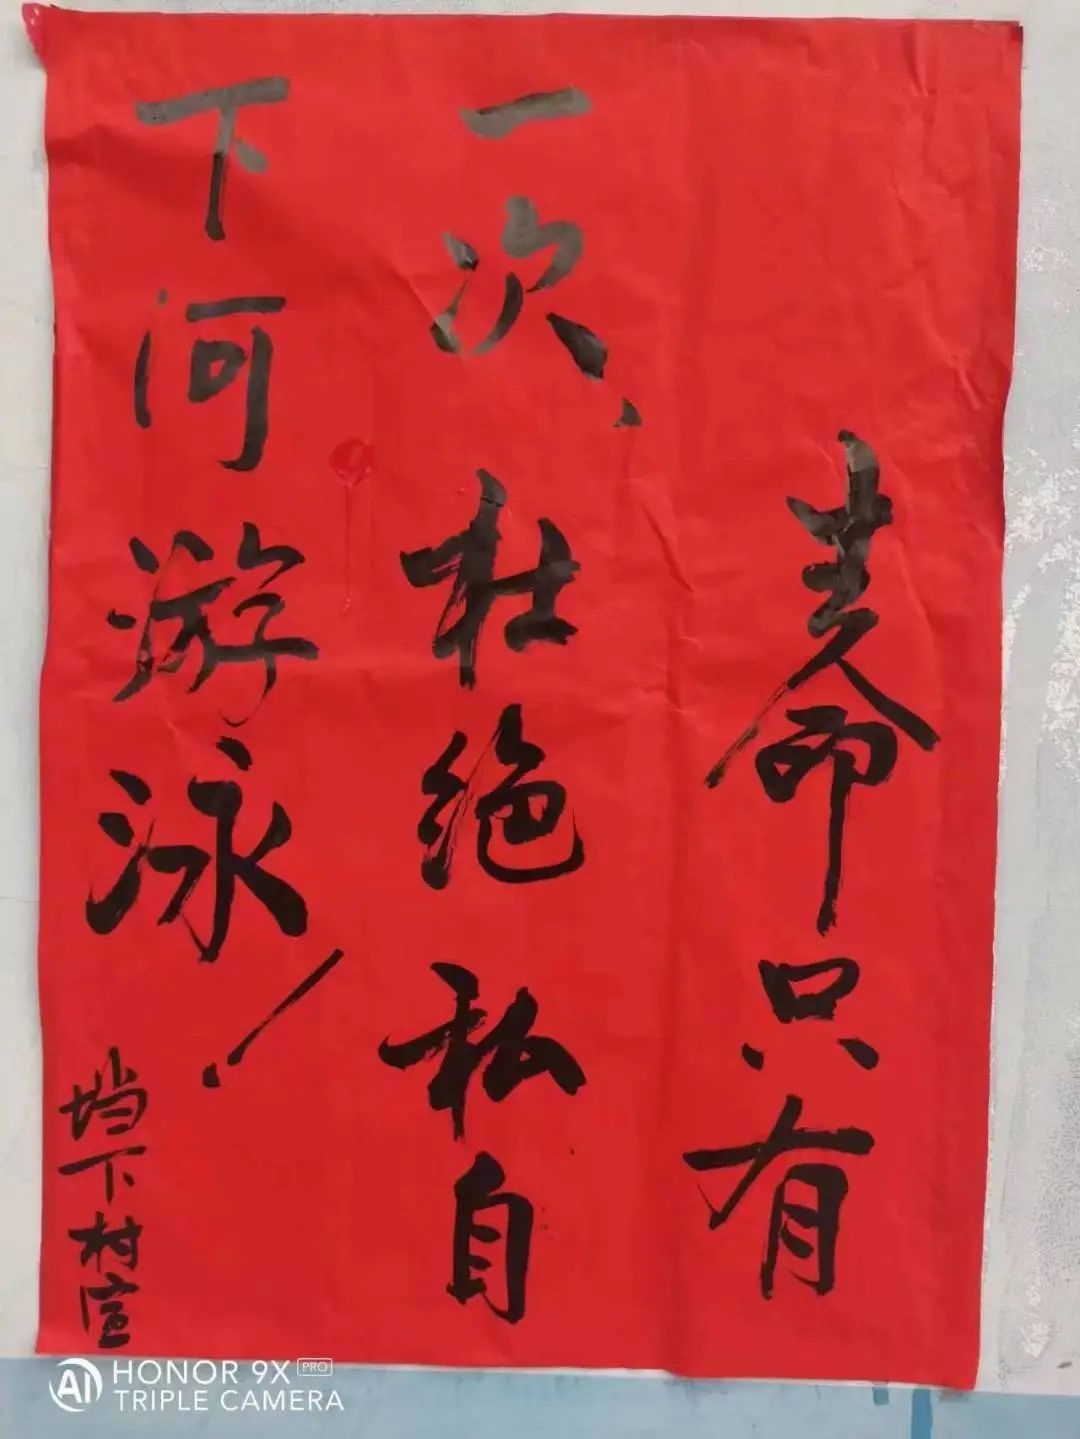 生命只有
一次、杜绝私自
下河游泳！
垱下村宣
HONOR 9X PRO
TRIPLE CAMERA